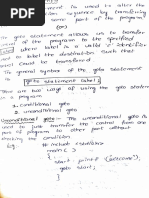 statement is used to alter the
sequence by transferring
some part of the program
(or)
The goto statement allows us to transfer
control of program to the specified
label where label is a valid 'c' identifier
label the destination such that
control could be transferred
The general syntax of the goto statement
goto statement label;
There are two ways of using the goto statement
in a program
1. conditional goto
2. unconditional goto
Unconditional goto - The unconditional goto is
used to just transfer the control from one
part of program to other part without
checking any condition
eg # include <stdio.h>
main()
{
start: printf("welcome");
goto start;
}